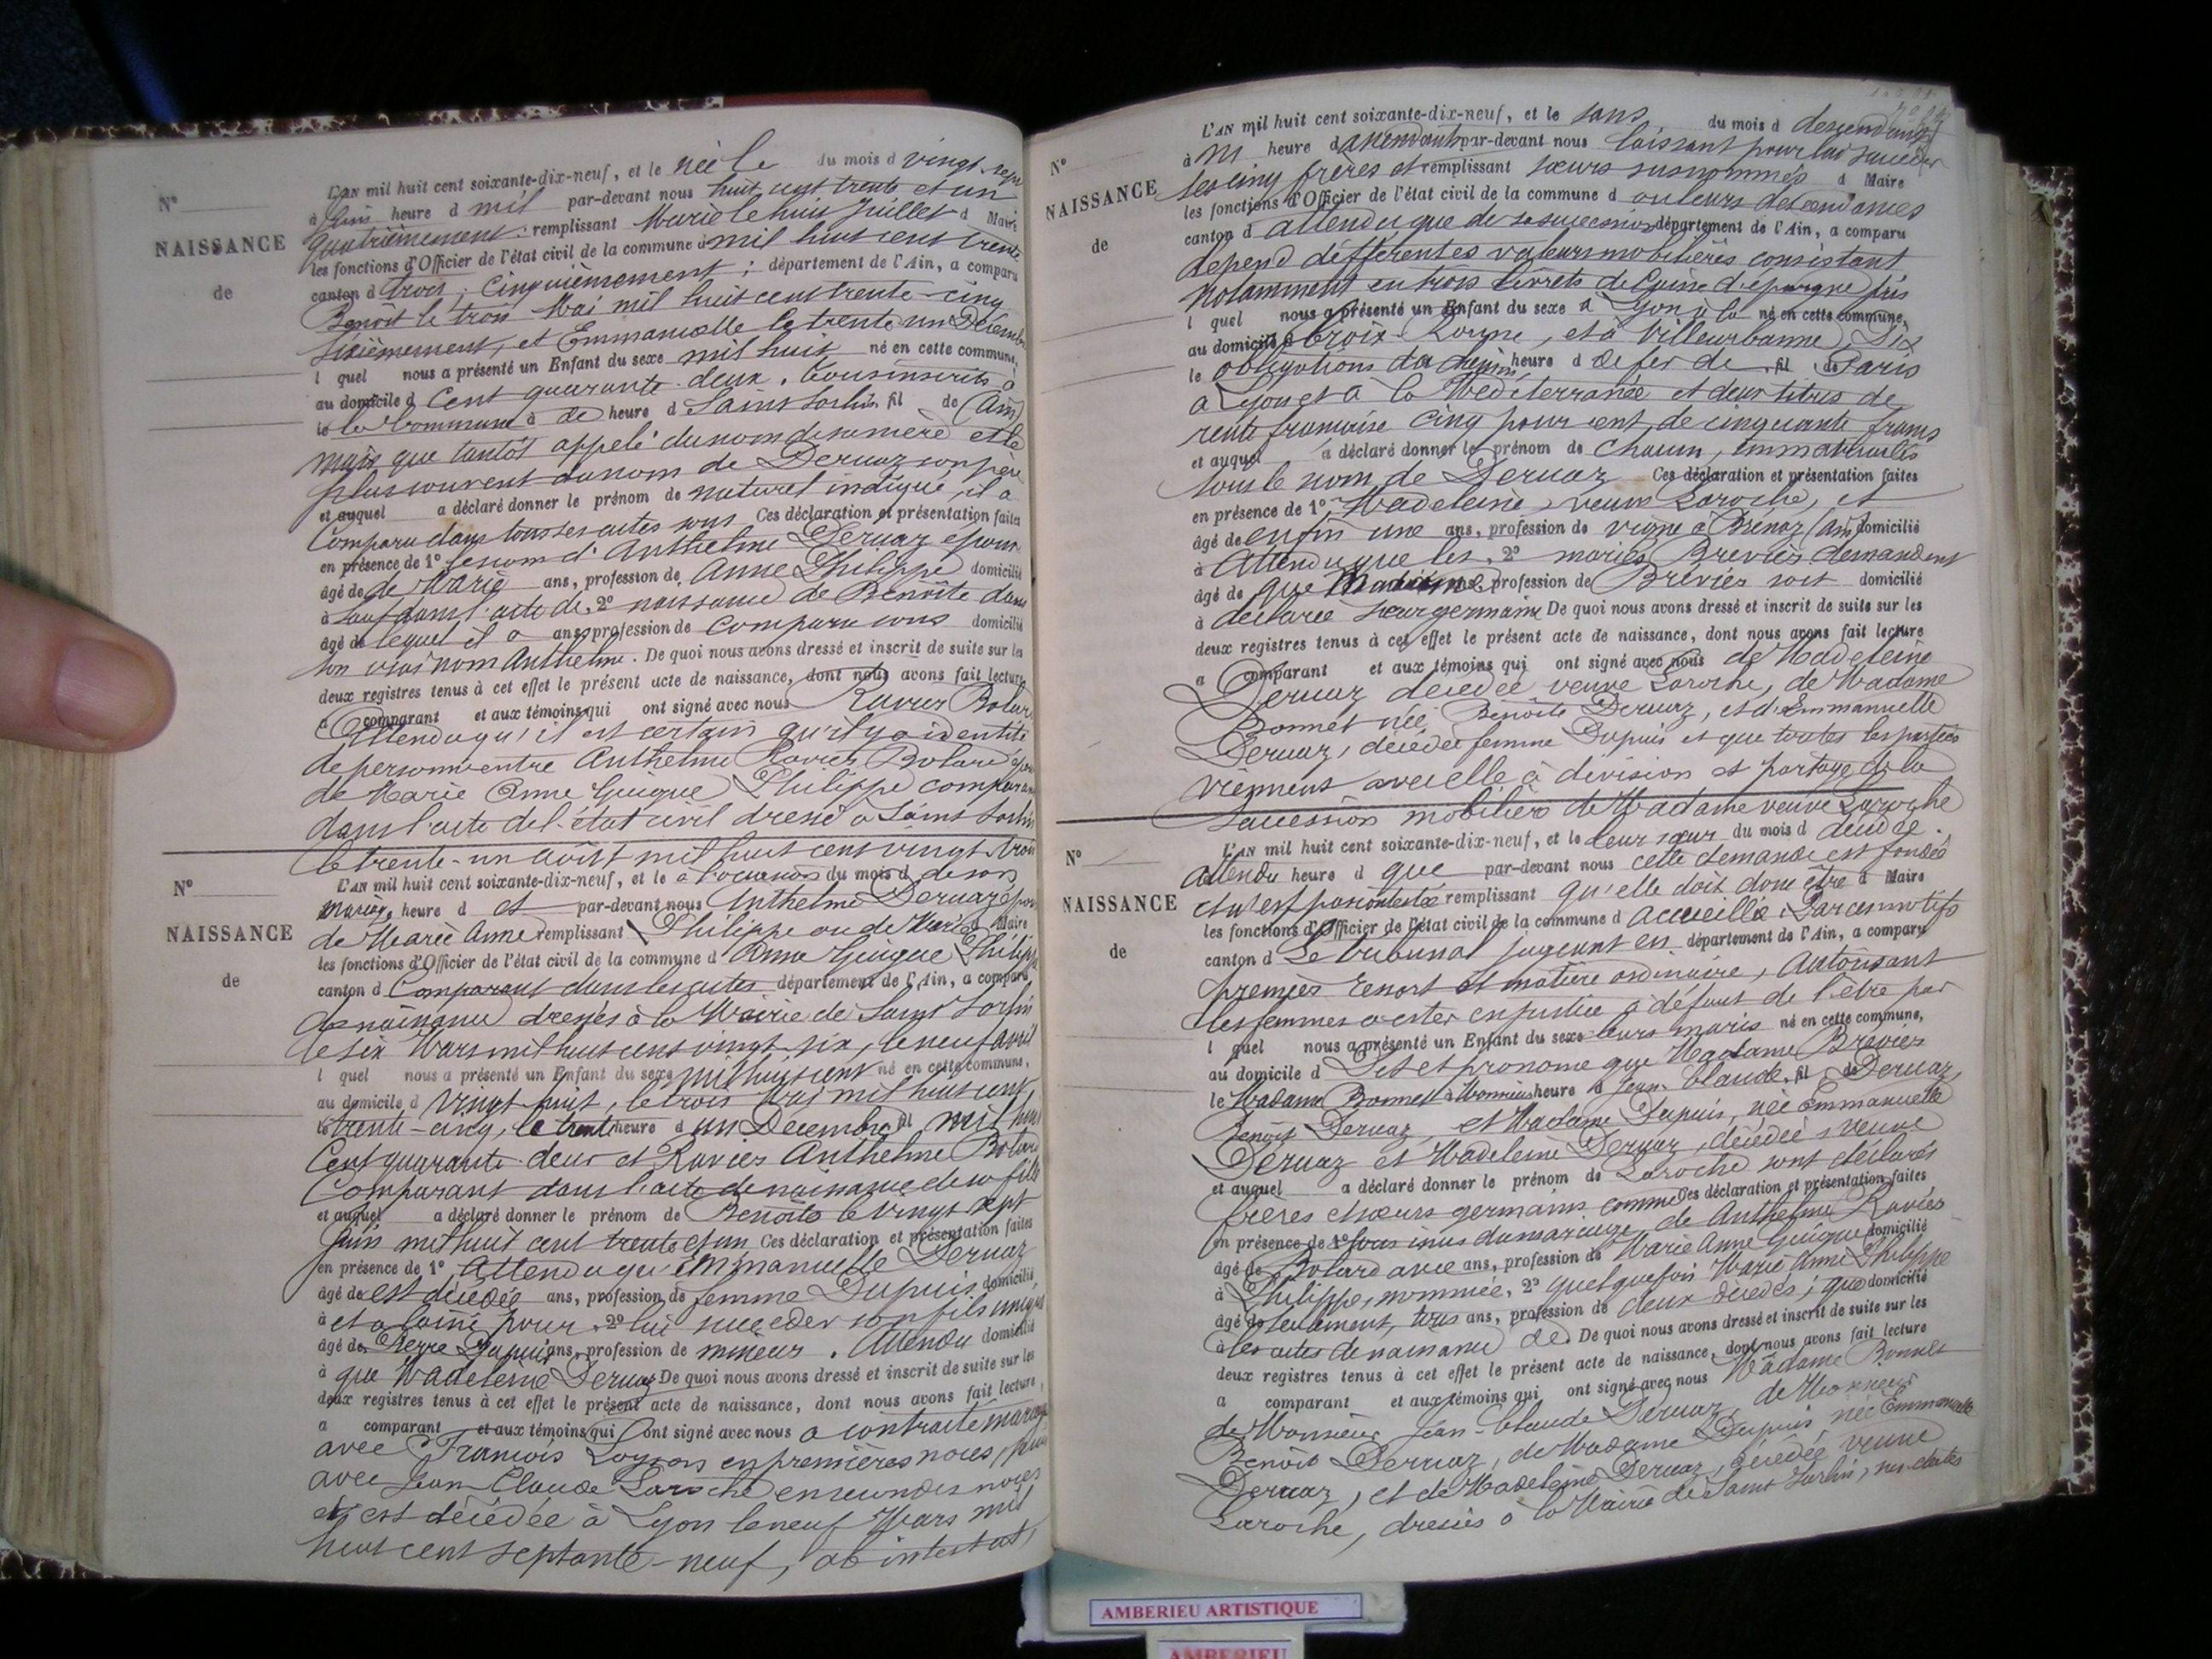 N°
NAISSANCE
de
L'AN mil huit cent soixante-dix-neuf, et le née le du mois d vingt-sept
à Juin heure d mil par-devant nous huit cent trente et un
quatrièmement: remplissant Marie le huit Juillet d Maire
les fonctions d'Officier de l'état civil de la commune d mil huit cent trente
canton d trois; Cinquièmement; département de l'Ain, a comparu
Benoît le trois Mai mil huit cent trente-cinq
Sixièmement, et Emmanuelle le trente un Décembre
l quel nous a présenté un Enfant du sexe mil huit né en cette commune,
au domicile d Cent quarante-deux. Tous inscrits à
le la Commune à de heure d Saint Sorlin fil de (Ain)
mais que tantôt appelé du nom de sa mère et le
plus souvent du nom de Deruaz son père
et auquel a déclaré donner le prénom de naturel indiqué, il a
Comparu dans tous ses actes sous Ces déclaration et présentation faites
en présence de 1° le nom d'Anthelme Deruaz époux
âgé de de Marie ans, profession de Anne Philippe domicilié
à Sauf dans l'acte de 2° naissance de Benoîte dans
âgé de lequel il a ans, profession de comparu sous domicilié
son vrai nom Anthelme. De quoi nous avons dressé et inscrit de suite sur les
deux registres tenus à cet effet le présent acte de naissance, dont nous avons fait lecture
a comparant et aux témoins qui ont signé avec nous Ravier Bolard
Attendu qu'il est certain qu'il y a identité
de personne entre Anthelme Ravier Bolard époux
de Marie Anne Guigue Philippe comparant
dans l'acte de l'état civil dressé à Saint Sorlin
le trente-un Août mil huit cent vingt trois
N°
NAISSANCE
de
L'AN mil huit cent soixante-dix-neuf, et le à l'occasion du mois d de son
Mariage heure d et par-devant nous Anthelme Deruaz époux
de Marie Anne remplissant Philippe ou de Marie d Maire
les fonctions d'Officier de l'état civil de la commune d Anne Guigue Philippe
canton d Comparant dans les actes département de l'Ain, a comparu
de naissance dressés à la Mairie de Saint Sorlin
le six Mars mil huit cent vingt-six, le neuf avril
l quel nous a présenté un Enfant du sexe mil huit cent né en cette commune,
au domicile d vingt huit, le trois Mai mil huit cent
le trente-cinq, le trente heure d un Décembre fil mil huit
Cent quarante-deux et Ravier Anthelme Bolard
Comparant dans l'acte de naissance de sa fille
et auquel a déclaré donner le prénom de Benoîte le vingt sept
Juin mil huit cent trente et un Ces déclaration et présentation faites
en présence de 1° Attendu qu'Emmanuelle Deruaz
âgé de est décédée ans, profession de femme Dupuis domicilié
à et a laissé pour 2° lui succéder son fils unique
âgé de Pierre Dupuis ans, profession de mineur. Attendu domicilié
à que Madeleine Deruaz De quoi nous avons dressé et inscrit de suite sur les
deux registres tenus à cet effet le présent acte de naissance, dont nous avons fait lecture,
a comparant et aux témoins qui ont signé avec nous a contracté mariage
avec François en premières noces, puis
avec Jean Claude Laroche en secondes noces
et est décédée à Lyon le neuf Mars mil
huit cent septante-neuf, ab intestat,
N°
NAISSANCE
de
L'AN mil huit cent soixante-dix-neuf, et le sans du mois d descendants
à ni heure d ascendants par-devant nous laissant pour lui succéder
ses cinq frères et remplissant soeurs susnommés d Maire
les fonctions d'Officier de l'état civil de la commune d ou leurs descendances
canton d attendu que de sa succession département de l'Ain, a comparu
dépend différentes valeurs mobilières consistant
notamment en trois livrets de Caisse d'épargne pris
l quel nous a présenté un Enfant du sexe à Lyon à la né en cette commune,
au domicile d Croix-Rousse, et à Villeurbanne, Dix
le obligations du chemin heure d de fer de fil de Paris
à Lyon et à la Méditerranée et deux titres de
rente française cinq pour cent, de cinquante francs
et auquel a déclaré donner le prénom de chacun, immatriculés
sous le nom de Deruaz Ces déclaration et présentation faites
en présence de 1° Madeleine, veuve Laroche, et
âgé de enfin une ans, profession de vigne à Bénaz (Ain) domicilié
à Attendu que les 2° mariés Brevier demandent
âgé de que Madame profession de Brevier soit domicilié
à déclarée soeur germaine De quoi nous avons dressé et inscrit de suite sur les
deux registres tenus à cet effet le présent acte de naissance, dont nous avons fait lecture
a comparant et aux témoins qui ont signé avec nous de Madeleine
Deruaz décédée veuve Laroche, de Madame
Bonnet née Benoîte Deruaz, et d'Emmanuelle
Deruaz, décédée femme Dupuis et que toutes les parties
viennent avec elle à division et partage de la
succession mobilière de Madame veuve Laroche
N°
NAISSANCE
de
L'AN mil huit cent soixante-dix-neuf, et le leur soeur du mois d décédée.
Attendu heure d que par-devant nous cette demande est fondée
et n'est pas contestée remplissant qu'elle doit donc être d Maire
les fonctions d'Officier de l'état civil de la commune d accueillie. Par ces motifs
canton d Le tribunal jugeant en département de l'Ain, a comparu
premier ressort et matière ordinaire, Autorisant
les femmes à ester en justice à défaut de l'être par
l quel nous a présenté un Enfant du sexe leurs maris né en cette commune,
au domicile d Dit et prononce que Madame Brevier
le Madame Bonnet à Monsieur heure d Jean-Claude fil de Deruaz,
Benoît Deruaz, et Madame Dupuis, née Emmanuelle
Deruaz et Madeleine Deruaz, décédée veuve
et auquel a déclaré donner le prénom de Laroche sont déclarés
frères et soeurs germains comme Ces déclaration et présentation faites
en présence de 1° tous issus du mariage de Anthelme Ravier
âgé de Bolard avec ans, profession de Marie Anne Guigue domicilié
à Philippe, nommée, 2° quelquefois Marie Anne Philippe
âgé de seulement, tous ans, profession de deux décédés; que domicilié
à les actes de naissance de De quoi nous avons dressé et inscrit de suite sur les
deux registres tenus à cet effet le présent acte de naissance, dont nous avons fait lecture
a comparant et aux témoins qui ont signé avec nous Madame Bonnet
de Monsieur Jean-Claude Deruaz, de Monsieur
Benoît Deruaz, de Madame Dupuis, née Emmanuelle
Deruaz, et de Madeleine Deruaz, décédée veuve
Laroche, dressés à la Mairie de Saint Sorlin, aux dates
AMBERIEU ARTISTIQUE
AMBERIEU